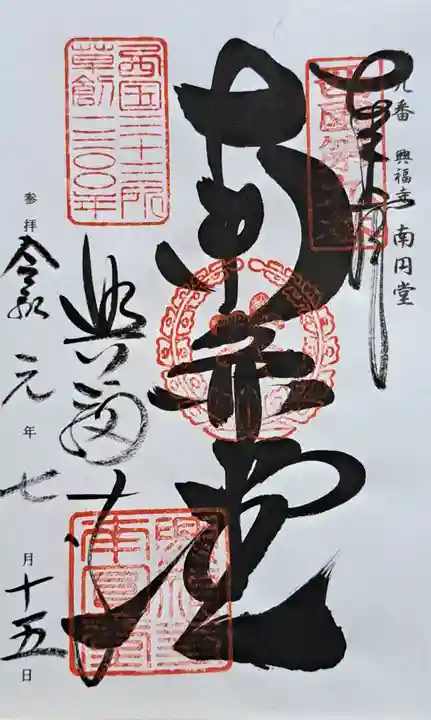 九番 興福寺 南円堂
奉拝
西国三十三所
草創一三〇〇年
南円堂
興福寺
参拝 令和元年七月十五日